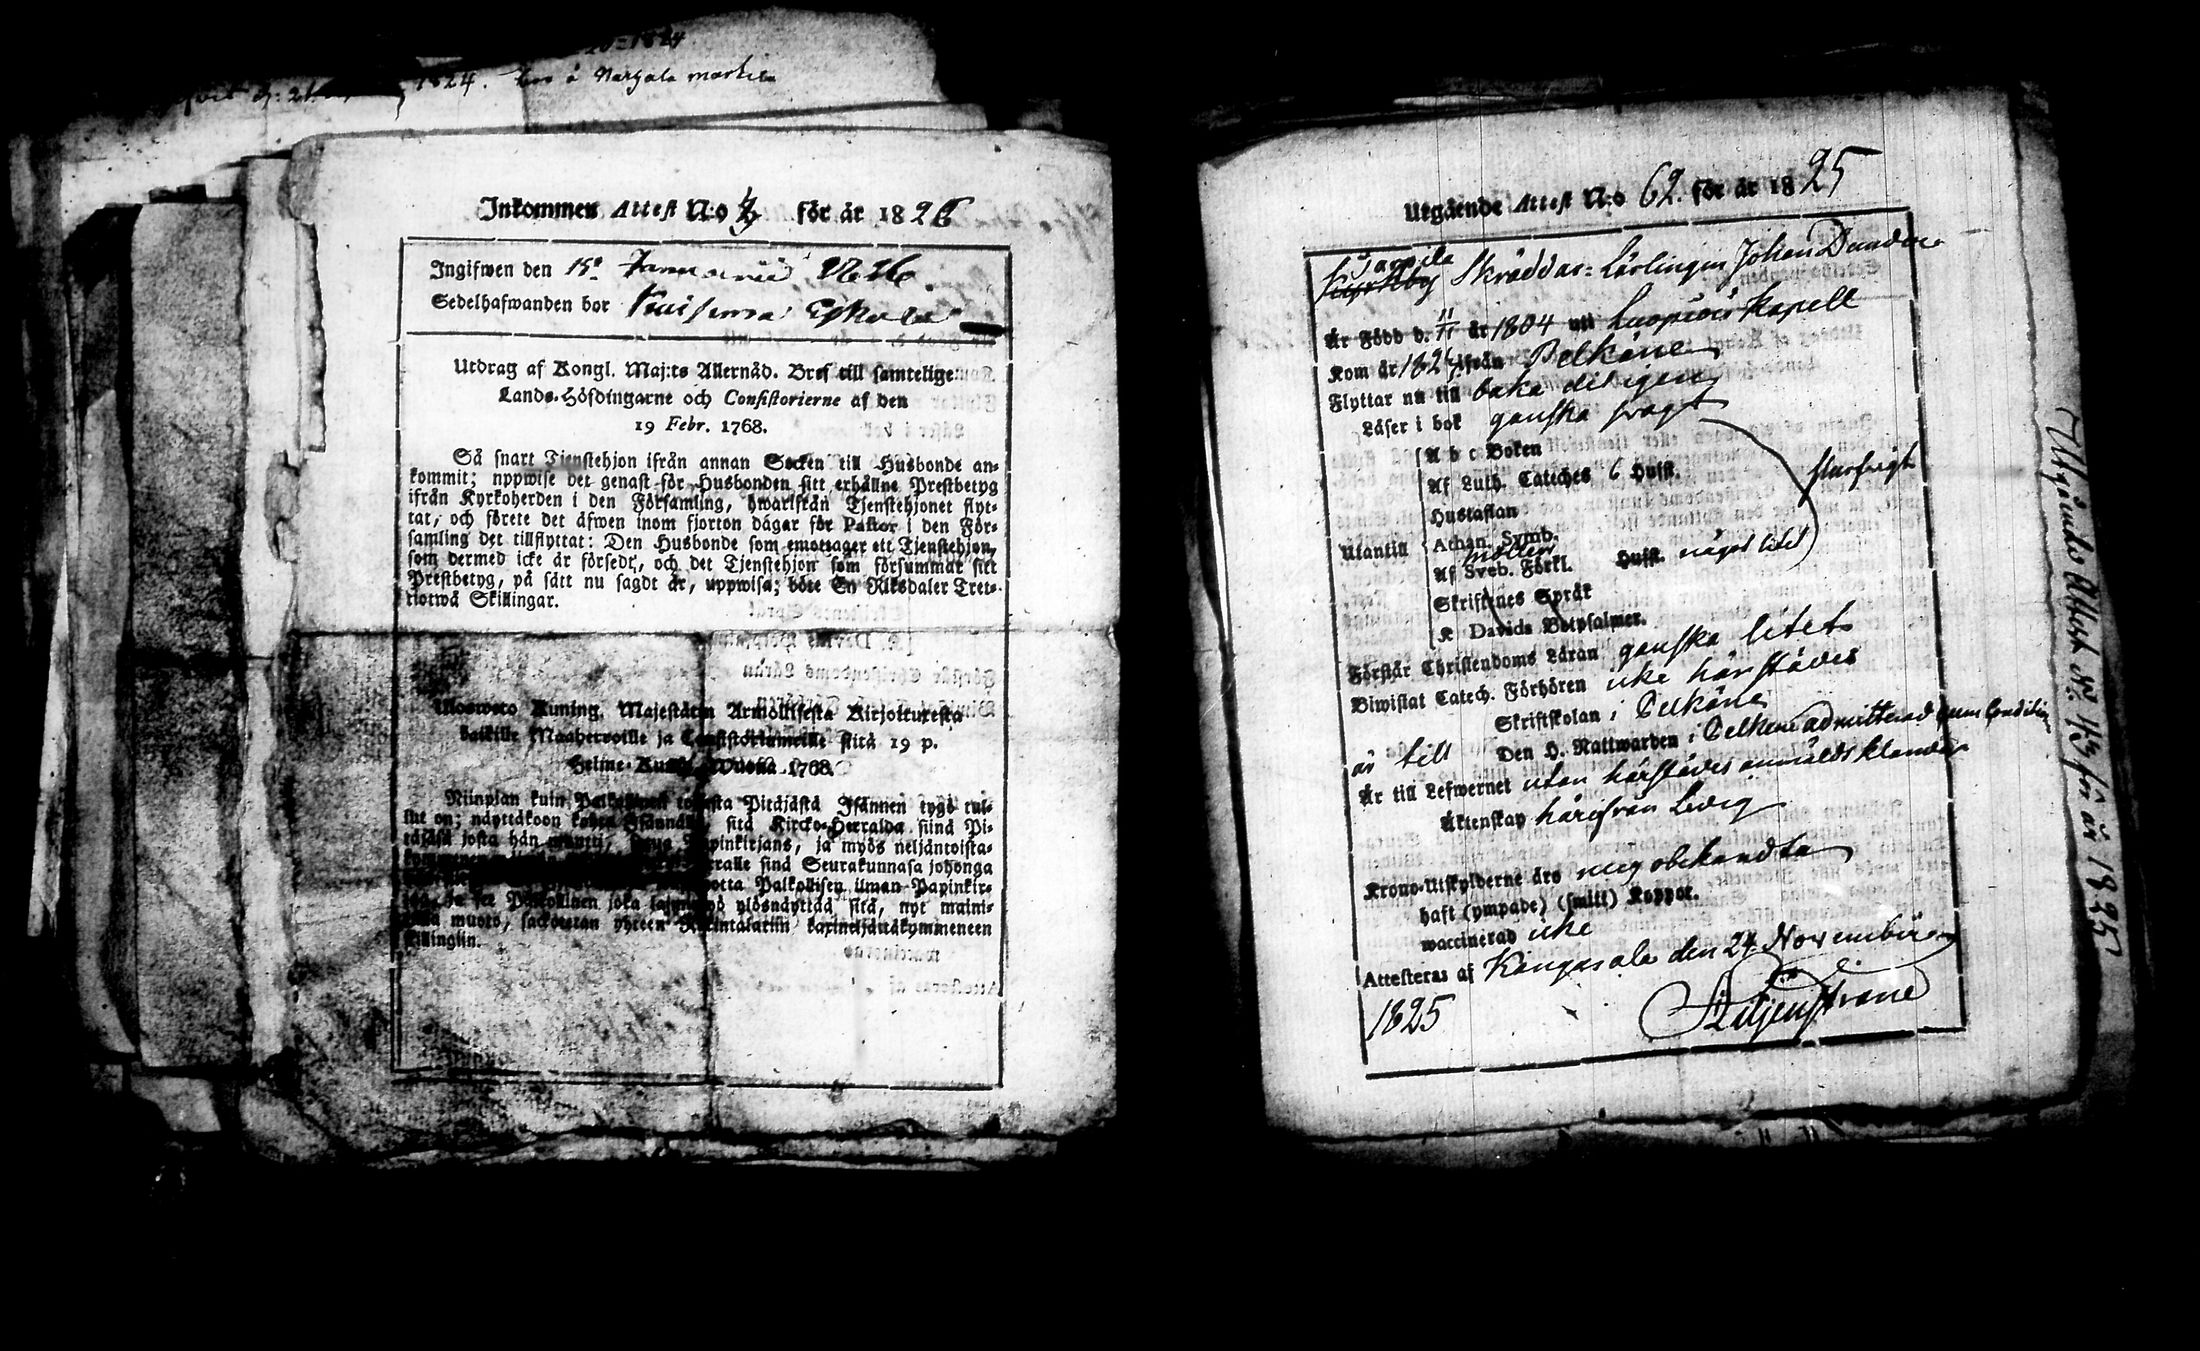 1824
1824. bor å Markala
Inkommen Attest N:o för år 1826
Ingifwen den 15 Januarii 1826.
Sedelhafwanden bor Kuisema Eskola
Utdrag af Kongl. Maj:ts Allernåd. Bref till samtelige
Lands-Höfdingarne och Consistorierne af den
19 Febr. 1768.
Så snart Tjenstehjon ifrån annan Socken till Husbonde an-
kommit; uppwise det genast för Husbonden sitt erhållne Prestbetyg
ifrån Kyrkoherden i den Församling, hwarifrån Tjenstehjonet flyt-
tat, och förete det äfwen inom fjorton dagar för Pastor i den För-
samling det tillflyttat: Den Husbonde som emottager ett Tjenstehjon,
som dermed icke är försedt, och det Tjenstehjon som försummar sitt
Prestbetyg, på sätt nu sagdt är, uppwisa; böte En Riksdaler Tret-
tiotwå Skillingar.
Uloswето Kuning. Majestätin Armollisesta Kirjoituxesta
kaikille Maaherroille ja Consistoriumeille siitä 19 p.
Helme-Kuusa Wuona 1768.
Niinpian kuin Palkollinen toisesta Pitäjästä Isännen tygö tul-
lut on; näyttäkoon kohta Isännälle, sitä Kircko-Herralda siinä Pi-
täjäsä josta hän muutti, saatua Papinkirjans, ja myös neljäntoista-
sinä Seurakunnasa johonga
otta Palkollisen ilman Papinkir-
ja se Palkollinen joka ulosnäyttää sitä, nyt maini-
tulla muoto, sackotetan yhteen Rikintalariin kaxineljättäkymmeneen
killingiin.
Utgående Attest N:o 62. för år 1825
Sarpila
Kyrkby Skräddar-Lärlingen Johan Danden
Är Född d. 11/11 år 1804 uti Luopiois Kapell
Kom år 1824 ifrån Pelkäne
Flyttar nu till baka ditigen
Läser i bok ganska swagt
A b c Boken
Af Luth. Cateches 6 Hufst. slarfwigt
Hustaflan
Utantill Athan. Symb.
Möller
Af Sveb. Förkl. Hufst. något litet
Skriftenes Språk
K Davids Botpsalmer.
Förstår Christendoms Läran ganska litet
Biwistat Catech. Förhören icke härstädes
Skriftskolan i Pelkäne
är till Den H. Nattwarden i Pelkäne admitterad cum Conditione
Är till Lefwernet utan härstädes anmäldt klander
Äktenskap härifrån Ledig
Krono-Utskylderne äro mig obekandta
haft (ympade) (smitt) Koppor.
waccinerad icke
Attesteras af Kangasala den 24 November
1825 Liljenstrand
Utgående Attest N:o 113 för år 1825